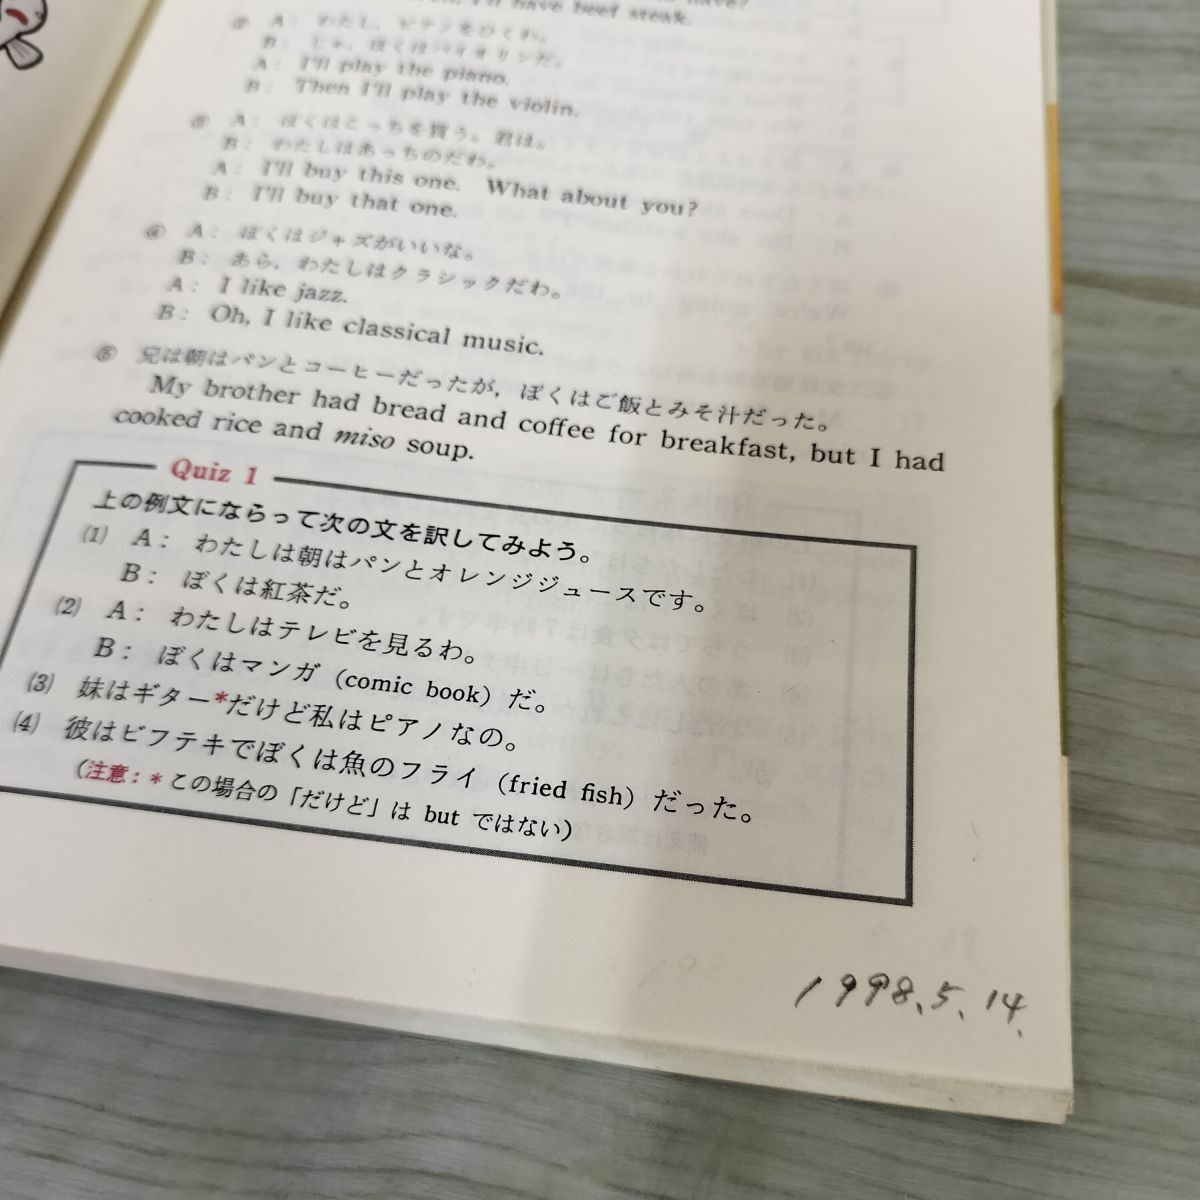 I'll have beef steak.
② A： わたし，ピアノをひくわ。
B： じゃ，ぼくはバイオリンだ。
A： I'll play the piano.
B： Then I'll play the violin.
③ A： ぼくはこっちを買う。君は。
B： わたしはあっちのだわ。
A： I'll buy this one. What about you?
B： I'll buy that one.
④ A： ぼくはジャズがいいな。
B： あら，わたしはクラシックだわ。
A： I like jazz.
B： Oh, I like classical music.
⑤ 兄は朝はパンとコーヒーだったが，ぼくはご飯とみそ汁だった。
My brother had bread and coffee for breakfast, but I had
cooked rice and miso soup.
Quiz 1
上の例文にならって次の文を訳してみよう。
(1) A： わたしは朝はパンとオレンジジュースです。
B： ぼくは紅茶だ。
(2) A： わたしはテレビを見るわ。
B： ぼくはマンガ (comic book) だ。
(3) 妹はギター*だけど私はピアノなの。
(4) 彼はビフテキでぼくは魚のフライ (fried fish) だった。
(注意：* この場合の「だけど」は but ではない)
1998.5.14.